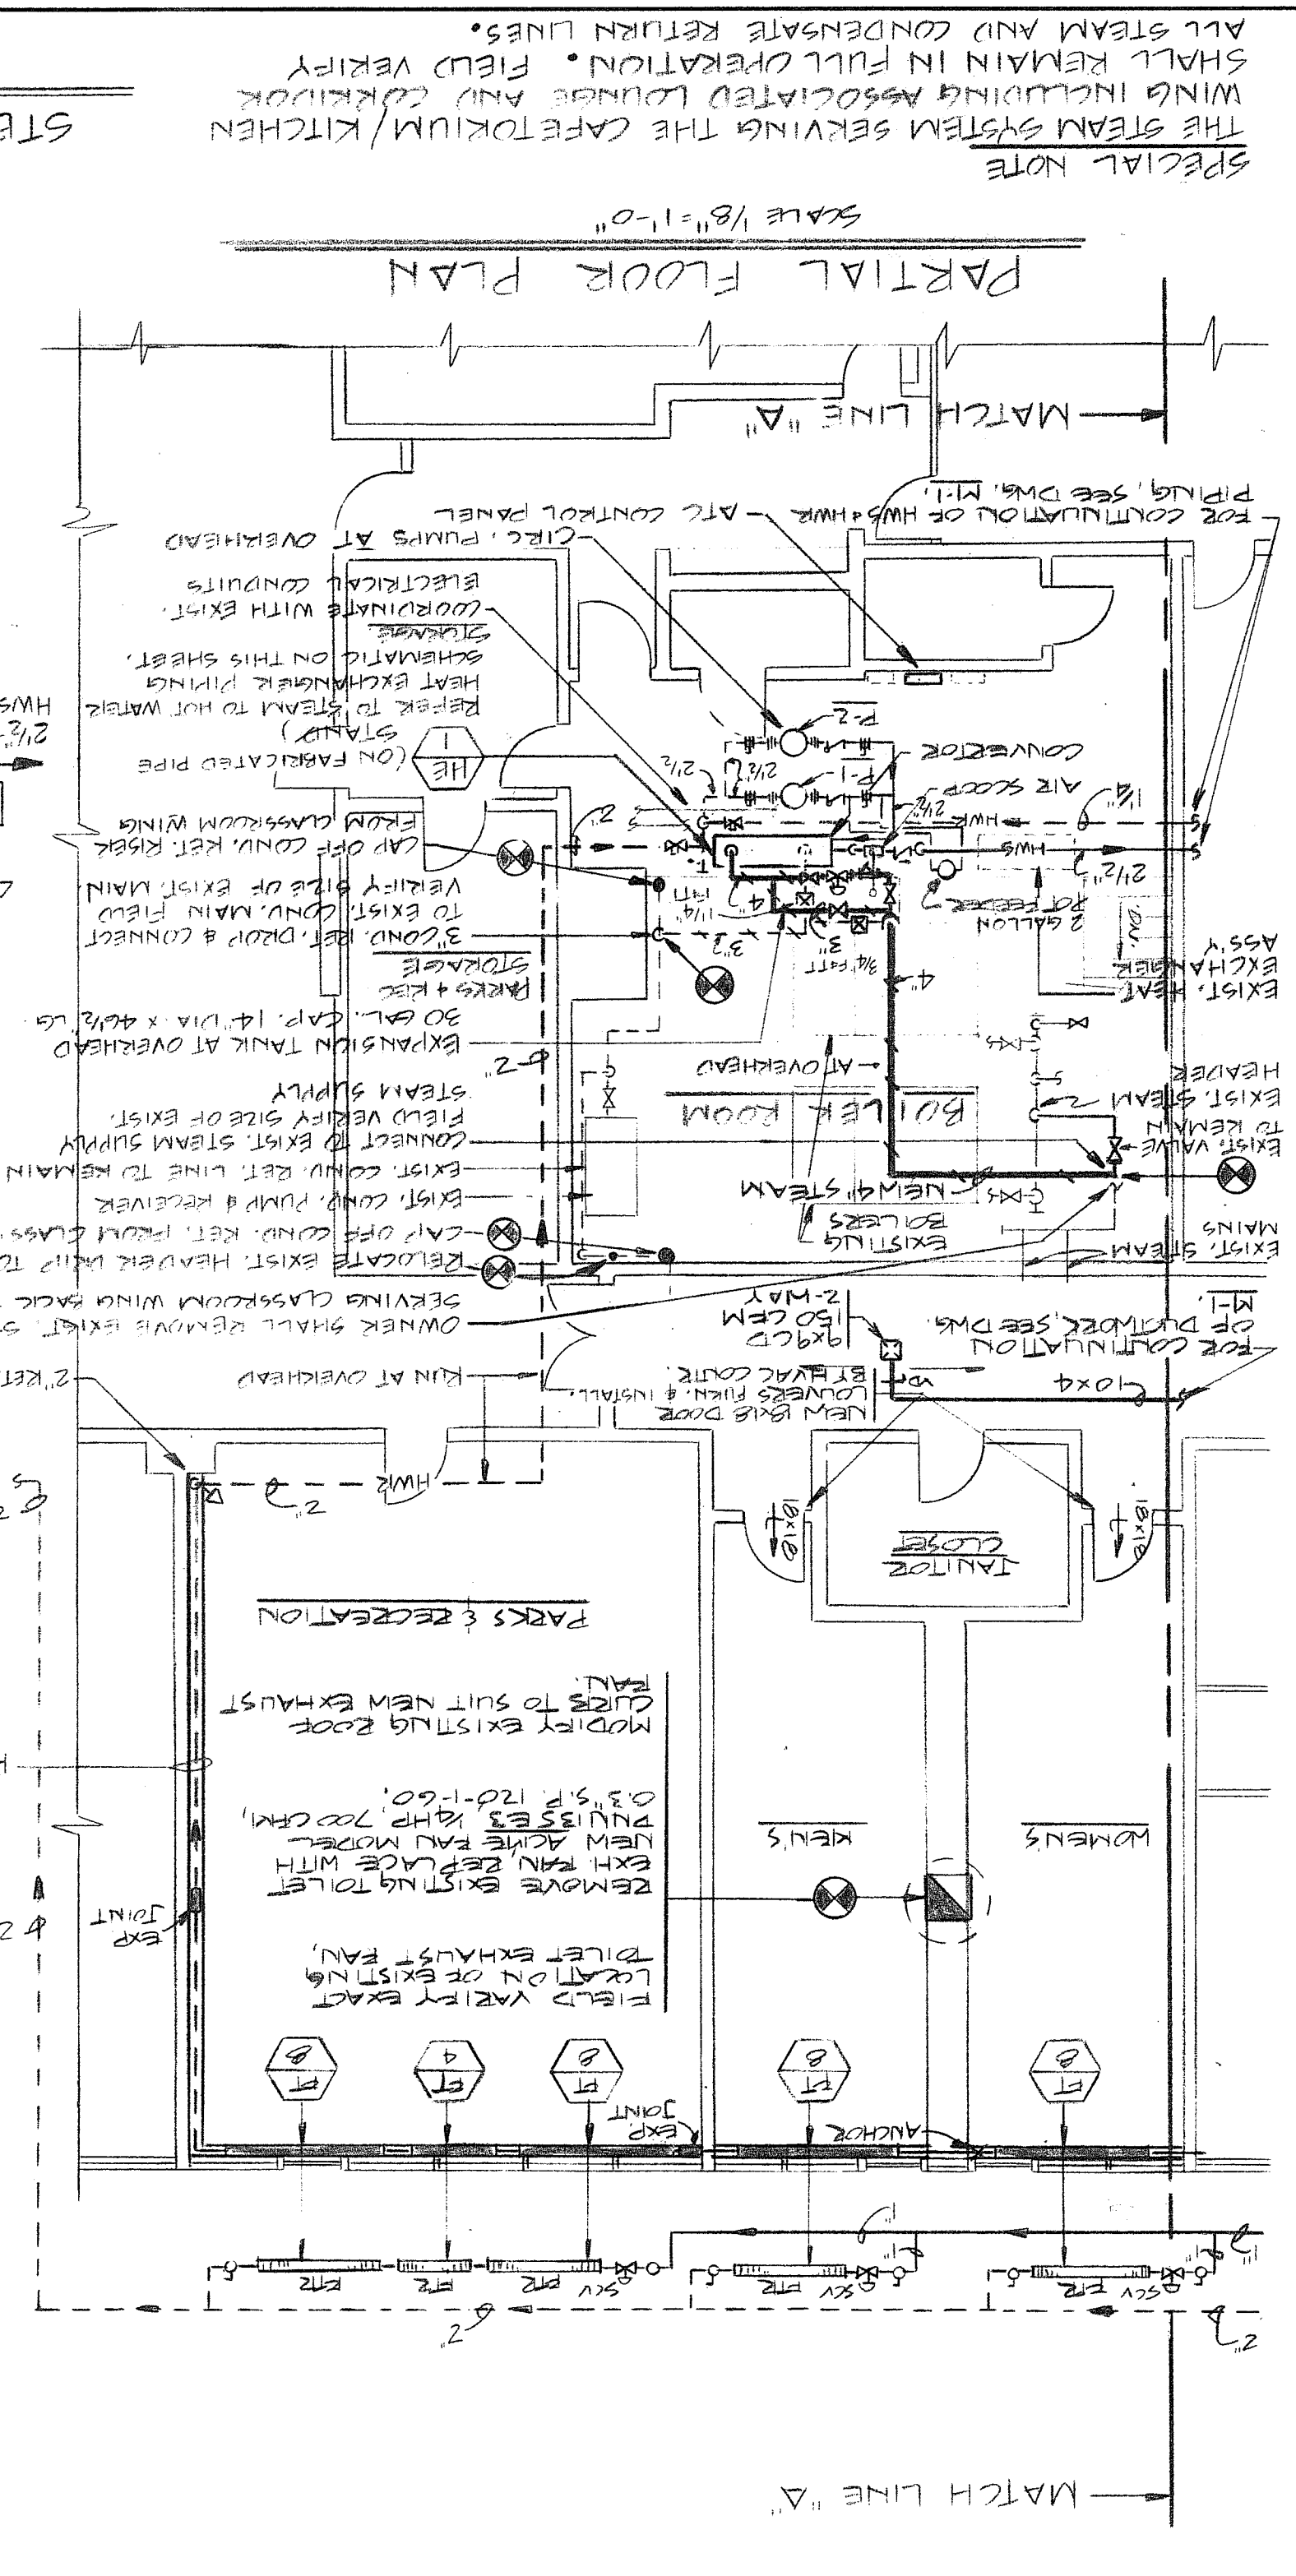 MATCH LINE "A"
2"
2"
1"
1"
1"
1"
FTR
SCV
FTR
SCV
FTR
SCV
FTR
FTR
ANCHOR
EXP.
JOINT
FT
8
FT
8
FT
8
FT
4
FT
8
FIELD VARIFY EXACT
LOCATION OF EXISTING
TOILET EXHAUST FAN,
REMOVE EXISTING TOILET
EXH. FAN, REPLACE WITH
NEW ACME FAN MODEL
PNN135E3, 1/4 HP, 700 CFM,
0.3" S.P. 120-1-60.
MODIFY EXISTING ROOF
CURB TO SUIT NEW EXHAUST
FAN.
EXP.
JOINT
WOMEN'S
MEN'S
PARKS & RECREATION
JANITOR
CLOSET
18x18
18x18
HWR
2"
FOR CONTINUATION
OF DUCTWORK, SEE DWG.
M-1.
10x4
NEW 18x18 DOOR
LOUVERS FURN. & INSTALL.
BY HVAC CONTR.
9x9 CD
150 CFM
2-WAY
RUN AT OVERHEAD
2" RET
OWNER SHALL REMOVE EXIST. S
SERVING CLASSROOM WING BACK
RELOCATE EXIST. HEADER DRIP TO
CAP OFF COND. RET. FROM CLASS
EXIST. COND. PUMP & RECEIVER
EXIST. COND. RET. LINE TO REMAIN
CONNECT TO EXIST. STEAM SUPPLY
FIELD VERIFY SIZE OF EXIST.
STEAM SUPPLY
EXIST. STEAM
MAINS
EXISTING
BOILERS
NEW 4" STEAM
EXIST. VALVE
TO REMAIN
EXIST. STEAM
HEADER
BOILER ROOM
AT OVERHEAD
2"
EXPANSION TANK AT OVERHEAD
30 GAL. CAP. 14" DIA x 46 1/2" LG
PARKS & REC
STORAGE
3" COND. RET. DROP & CONNECT
TO EXIST. COND. MAIN FIELD
VERIFY SIZE OF EXIST. MAIN
CAP OFF COND. RET. RISER
FROM CLASSROOM WING
EXIST. HEAT
EXCHANGER
ASS'Y
2 GALLON
POT FEEDER
4"
3/4" F&TT
3"
3"
4"
1 1/4"
F&TT
2 1/2"
HWS
HWR
1 1/4"
2"
AIR SCOOP
CONVERTOR
2 1/2"
2 1/2"
2 1/2
P-1
P-2
HE
1
(ON FABRICATED PIPE
STAND)
REFER TO STEAM TO HOT WATER
HEAT EXCHANGER PIPING
SCHEMATIC ON THIS SHEET.
STORAGE
COORDINATE WITH EXIST.
ELECTRICAL CONDUITS
CIRC. PUMPS AT OVERHEAD
ATC CONTROL PANEL
FOR CONTINUATION OF HWS & HWR
PIPING, SEE DWG. M-1.
2 1/2"
HWS
MATCH LINE "A"
PARTIAL FLOOR PLAN
SCALE 1/8"=1'-0"
SPECIAL NOTE
THE STEAM SYSTEM SERVING THE CAFETORIUM/KITCHEN
WING INCLUDING ASSOCIATED LOUNGE AND CORRIDOR
SHALL REMAIN IN FULL OPERATION. FIELD VERIFY
ALL STEAM AND CONDENSATE RETURN LINES.
STE